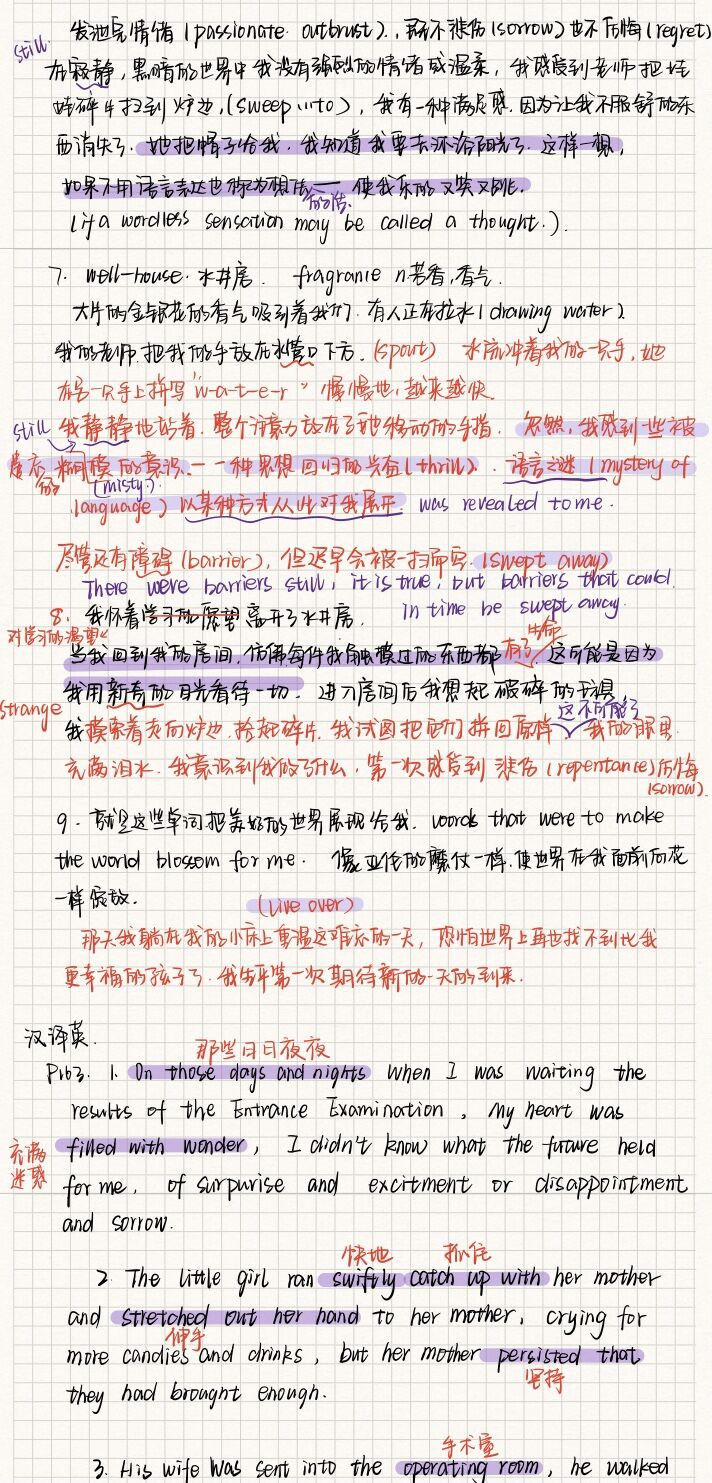 发泄完情绪 (passionate outbrust), 既不悲伤 (sorrow) 也不后悔 (regret)
still
在寂静,黑暗的世界中我没有强烈的情绪或温柔,我感受到老师把娃
娃碎片扫到炉边, (sweep into), 我有一种满足感.因为让我不服舒的东
西消失了.她把帽子给我,我知道我要去沐浴阳光了.这样一想,
如果不用语言表达也称为想法—— 使我乐的又笑又跳.
的话
(if a wordless sensation may be called a thought.).
7. well-house. 水井房. fragranie n.芳香,香气.
大片的金银花的香气吸引着我们.有人正在拉水 (drawing water).
我的老师.把我的手放在水管口下方. (spout) 水流冲着我的一只手,她
在另一只手上拼写"w-a-t-e-r" 慢慢地,越来越快.
still 我静静地站着.整个注意力放在了她移动的手指. 忽然,我感到一些被
遗忘的 糊模的意识——一种思想回归的兴奋 (thrill). 语言之谜 (mystery of
(misty)
language) 以某种方式从此对我展开. was revealed to me.
尽管还有障碍 (barrier), 但迟早会被一扫而空. (swept away)
There were barriers still, it is true, but barriers that could
8. 我怀着学习的愿望离开了水井房. in time be swept away.
对学习的渴望
当我回到我的房间,仿佛每件我触摸过的东西都有了生命.这可能是因为
我用新奇的目光看待一切. 进入房间后我想起破碎的玩偶,
strange
我摸索着走向炉边.捡起碎片.我试图把它们拼回原样, 我的眼里
这不可能了
充满泪水.我意识到我做了什么,第一次感受到悲伤 (repentance) 后悔
(sorrow).
9. 就是这些单词把美好的世界展现给我. words that were to make
the world blossom for me. 像亚伦的魔仗一样.使世界在我面前向花
一样绽放.
(live over)
那天我躺在我的小床上重温这难忘的一天, 恐怕世界上再也找不到比我
更幸福的孩子了.我生平第一次期待新的一天的到来.
汉译英.
那些日日夜夜
P163. 1. On those days and nights when I was waiting the
results of the Entrance Examination, my heart was
filled with wonder, I didn't know what the future held
充满迷惑
for me, of surpurise and excitment or disappointment
and sorrow.
快地 抓住
2. The little girl ran swiftly catch up with her mother
and stretched out her hand to her mother, crying for
伸手
more candies and drinks, but her mother persisted that
坚持
they had brought enough.
手术室
3. His wife was sent into the operating room, he walked